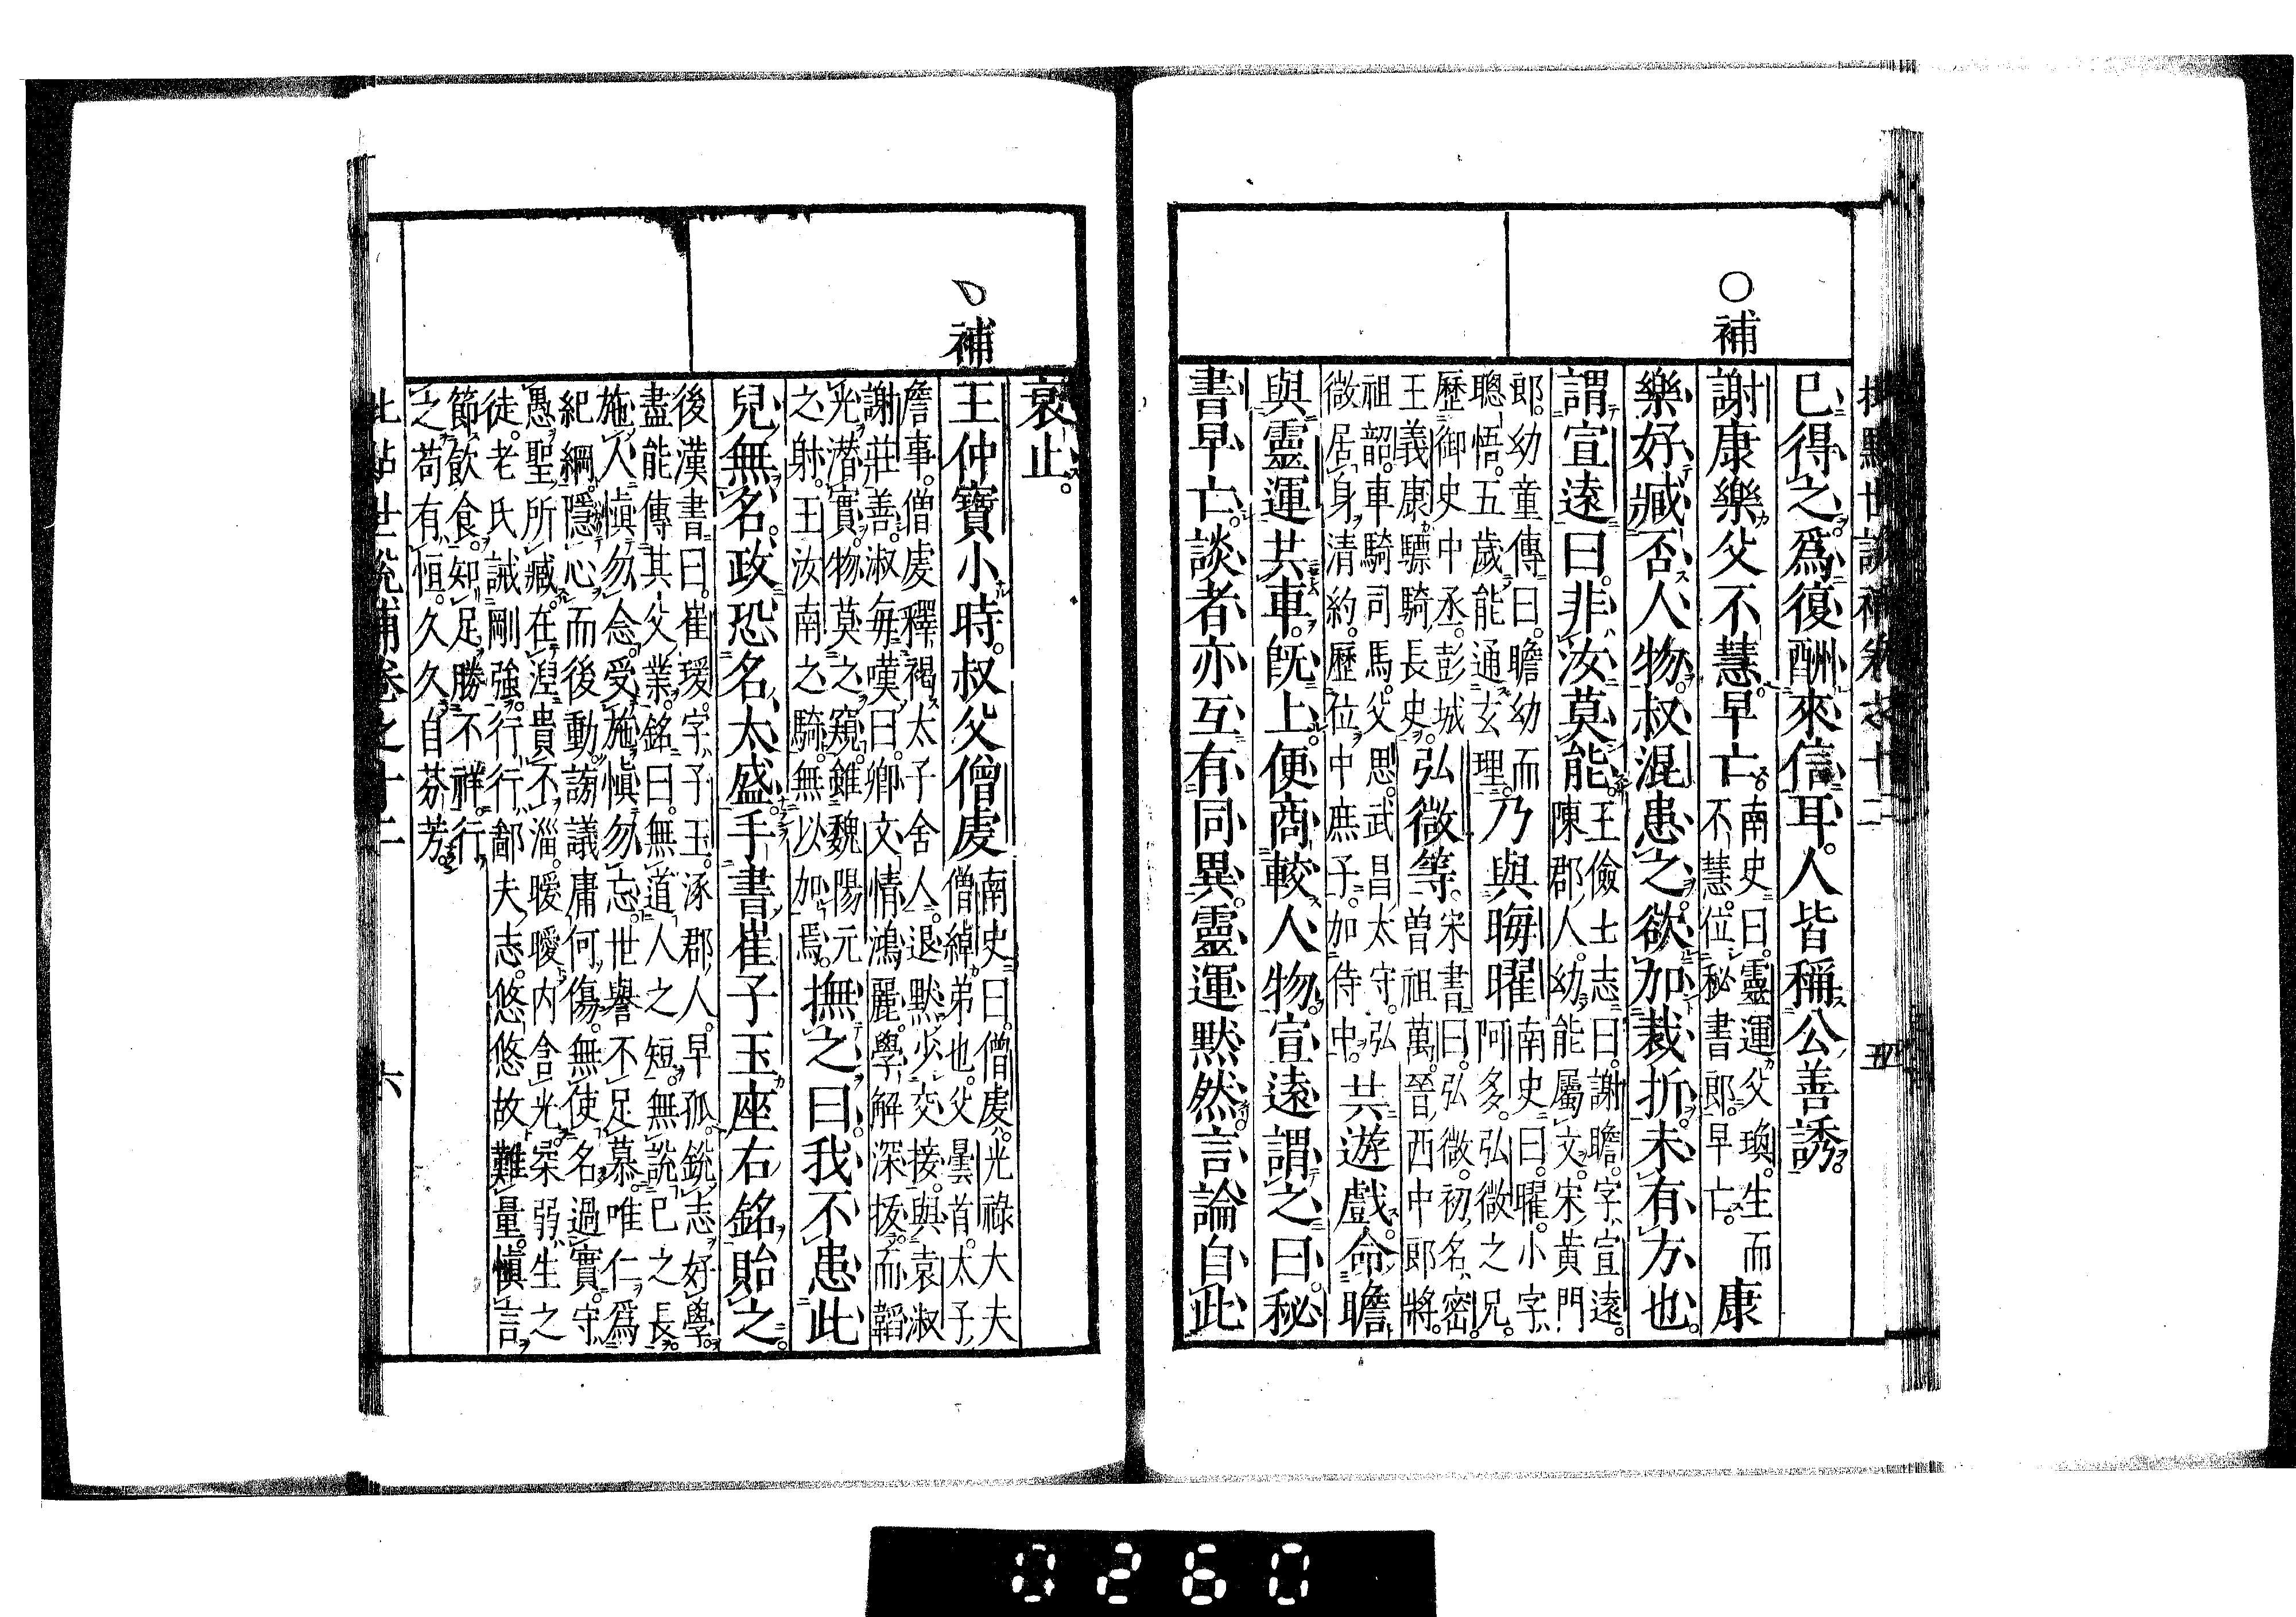 補
已得之。爲復酬來信耳。人皆稱公善誘。
謝康樂父不慧。早亡。南史曰。靈運父瑍。生而
不慧。位秘書郎。早亡。康
樂好臧否人物。叔混患之。欲加裁折。未有方也。
謂宣遠曰。非汝莫能。王儉士志曰。謝瞻。字宣遠。
陳郡人。幼能屬文。宋黃門
郎。幼童傳曰。瞻幼而
聰悟。五歲能通玄理。乃與晦曜南史曰。曜。小字
阿多。弘微之兄。
歷御史中丞。彭城
王義康驃騎長史。弘微等。宋書曰。弘微。初名密。
曾祖萬。晉西中郎將。
祖韶。車騎司馬。父思。武昌太守。弘
微居身清約。歷位中庶子。加侍中。共遊戲。命瞻
與靈運共車。既上。便商較人物。宣遠謂之曰。秘
書早亡。談者亦互有同異。靈運默然。言論自此
補
衰止。
王仲寶小時。叔父僧虔南史曰。僧虔。光祿大夫
僧綽弟也。父曇首。太子
詹事。僧虔釋褐太子舍人。退默少交接。與袁淑
謝莊善。淑每嘆曰。卿文情鴻麗。學解深拔。而韜
光潛實。物莫之窺。雖魏陽元
之射。王汝南之騎。無以加焉。撫之曰。我不患此
兒無名。政恐名太盛。手書崔子玉座右銘貽之。
後漢書曰。崔瑗。字子玉。涿郡人。早孤。銳志好學。
盡能傳其父業。銘曰。無道人之短。無說己之長。
施人慎勿念。受施慎勿忘。世譽不足慕。唯仁爲
紀綱。隱心而後動。謗議庸何傷。無使名過實。守
愚聖所臧。在涅貴不淄。曖曖內含光。柔弱生之
徒。老氏誡剛強。行行鄙夫志。悠悠故難量。慎言
節飲食。知足勝不祥。行
之苟有恒。久久自芬芳。
六
0260